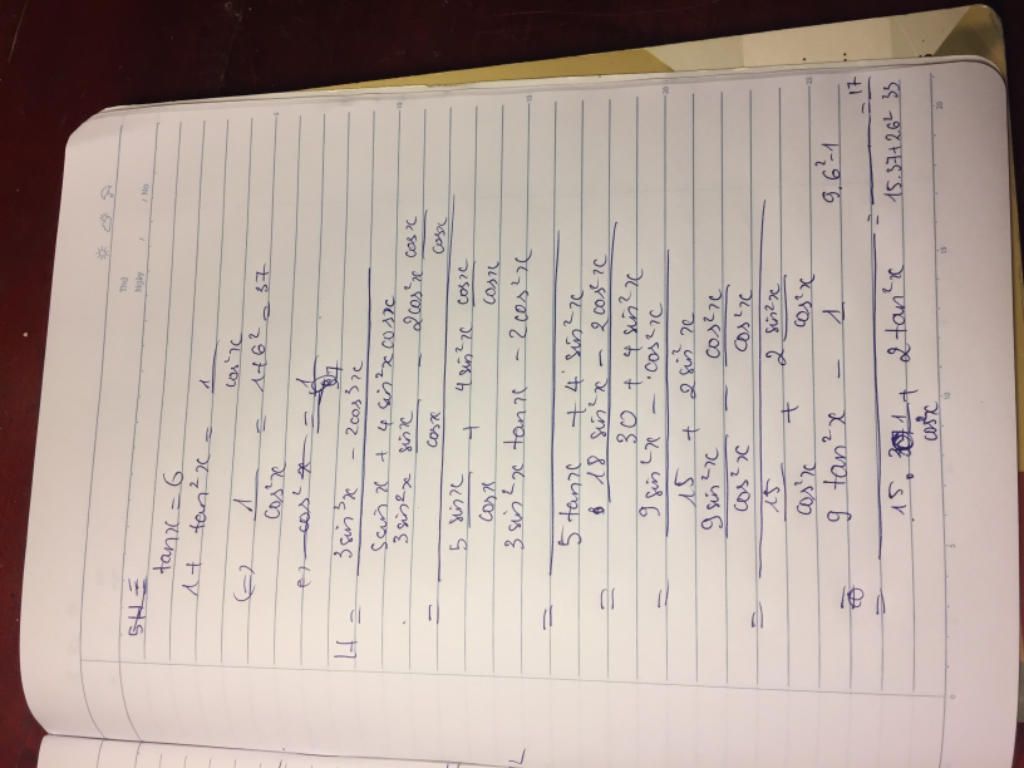 Thứ
Ngày , , No
5H =
tanx = 6
1 + tan²x = 1/cos²x
(=) 1/cos²x = 1+6² = 37
H = (3sin³x - 2cos³x)/(5sinx + 4sin²x cosx)
= (3sin²x sinx/cosx - 2cos²x cosx/cosx)/(5 sinx/cosx + 4sin²x cosx/cosx)
= (3sin²x tanx - 2cos²x)/(5tanx + 4sin²x)
= (18 sin²x - 2cos²x)/(30 + 4sin²x)
= (9sin²x - cos²x)/(15 + 2sin²x)
= (9sin²x/cos²x - cos²x/cos²x)/(15/cos²x + 2 sin²x/cos²x)
= (9 tan²x - 1)/(15. 1/cos²x + 2tan²x) = (9.6²-1)/(15.37+2.6²) = 17/33